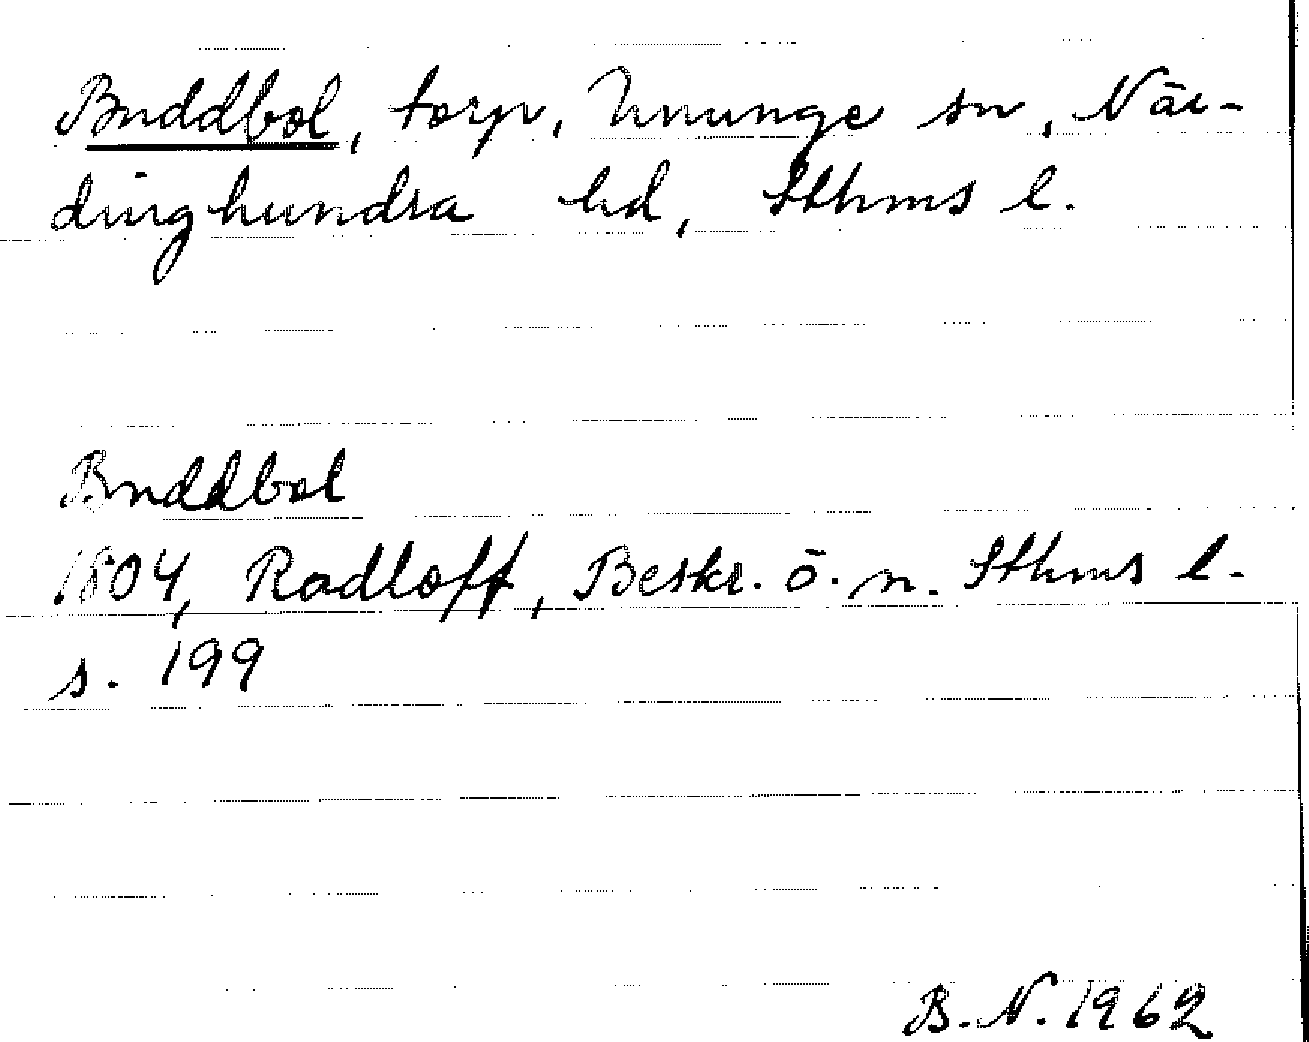 Buddbol, torp, Ununge sn, När-
dinghundra hd, Sthms l.
Buddbol
1804, Radloff, Beskr. ö. n. Sthms l.
s. 199
B. N. 1962